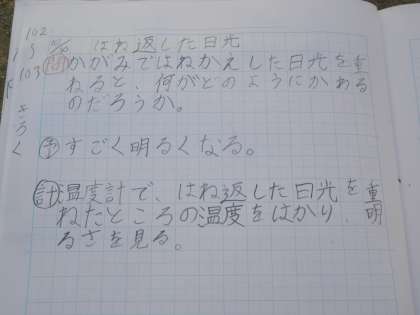 はね返した日光
問 かがみではねかえした日光を重
ねると、何がどのようにかわる
のだろうか。
予 すごく明るくなる。
計 温度計で、はね返した日光を重
ねたところの温度をはかり、明
るさを見る。
102
103
きろく